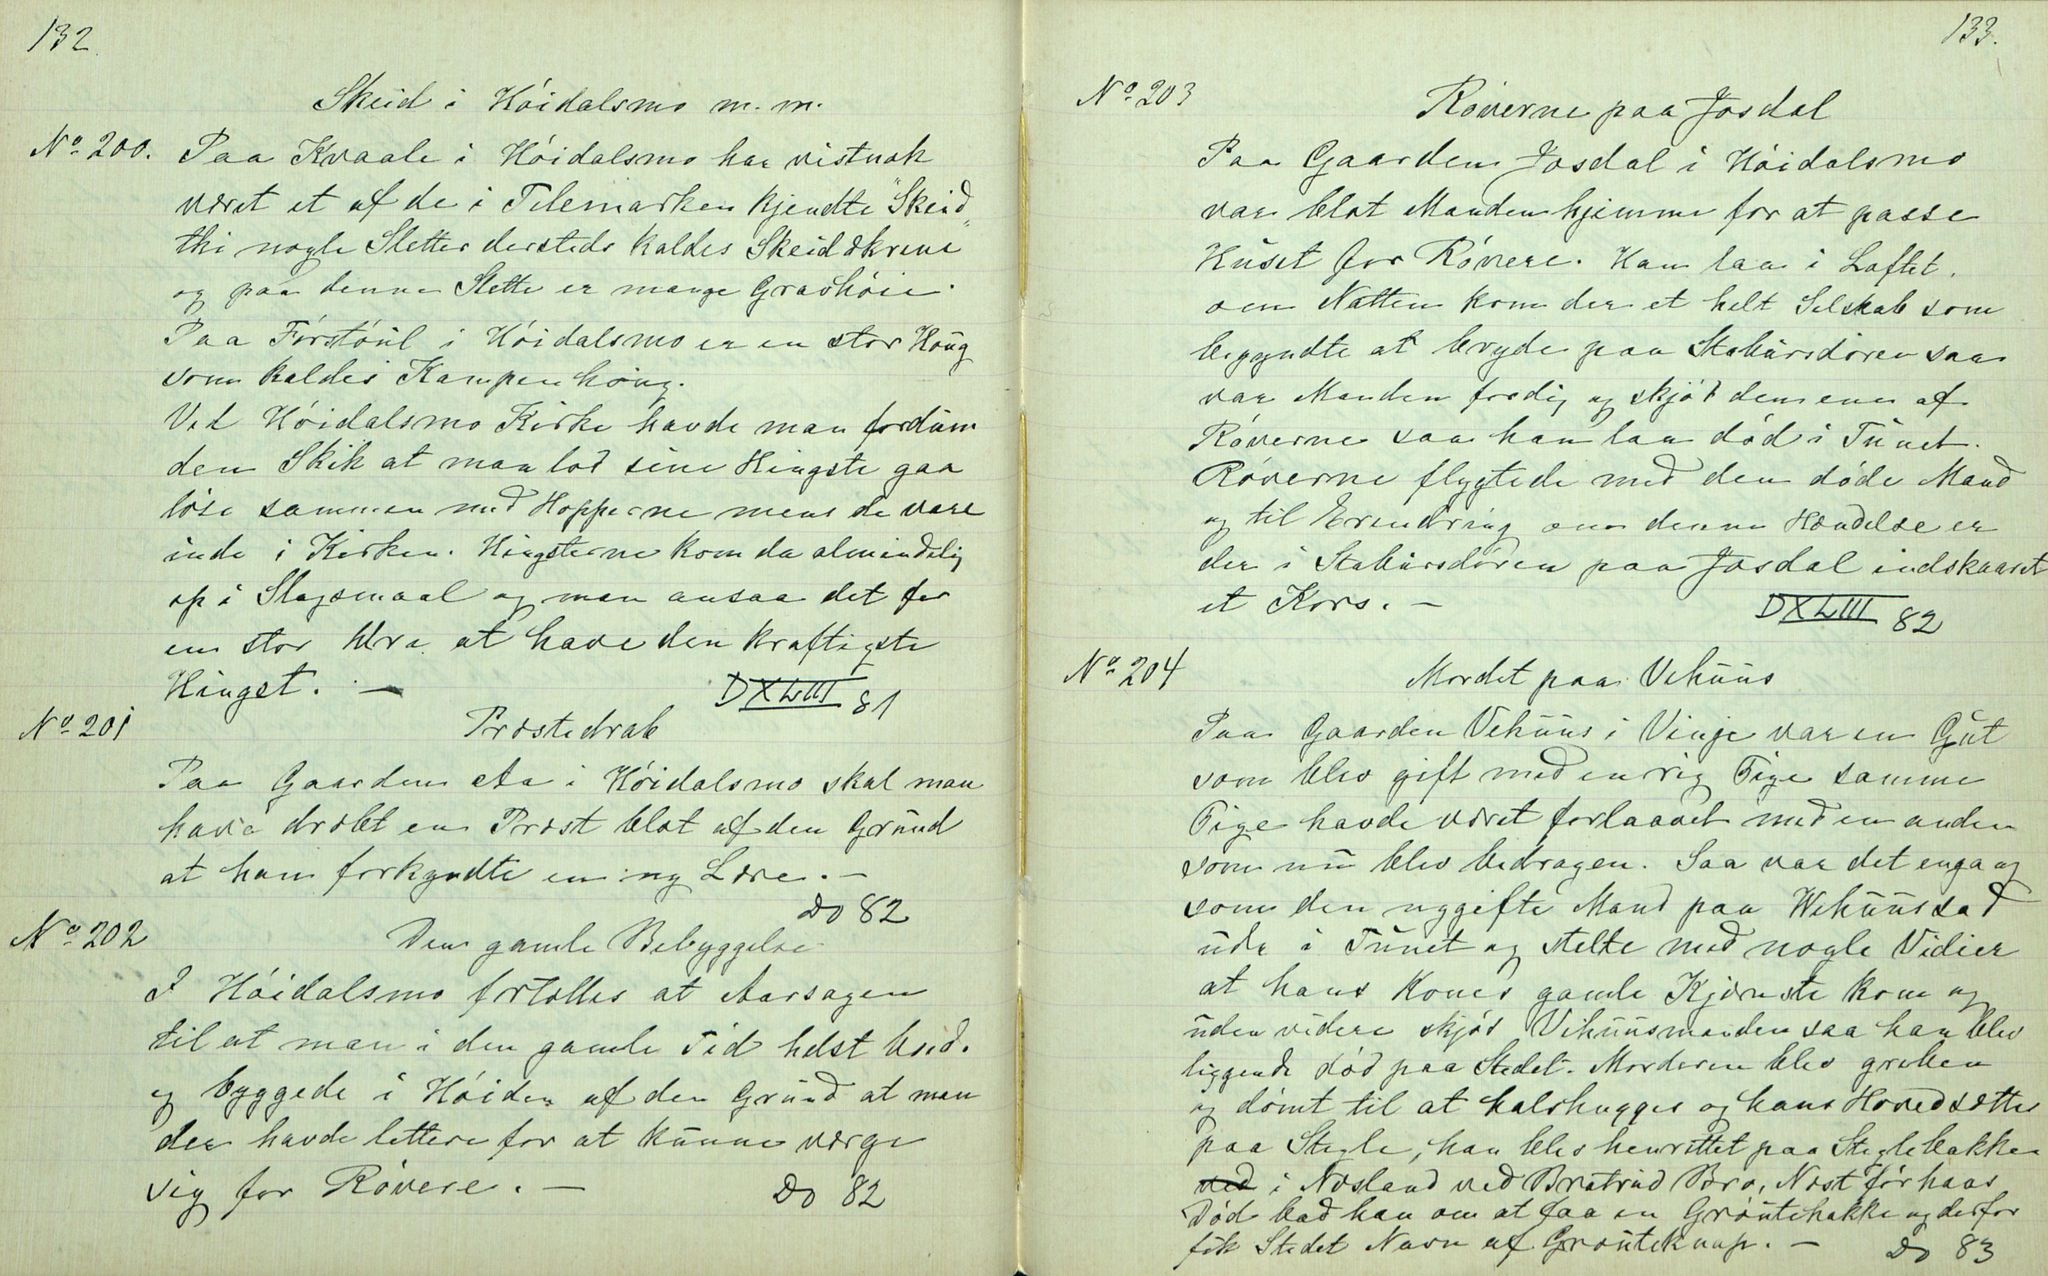 132.
Skeid i Höidalsmo m. m.
No 200. Paa Kvaale i Höidalsmo har vistnok
været et af de i Telemarken kjendte "Skeid"
thi nogle Sletter dersteds kaldes Skeidskrene
og paa denne Slette er mange Gravhöie.
Paa Förstöül i Höidalsmo er en stor Houg
som kaldes Kampenhoug.
Ved Höidalsmo Kirke havde man fordum
den Skik at man lod sine Hingste gaa
löse sammen med Hopperne mens de vare
inde i Kirken. Hingsterne kom da almindelig
op i Slagsmaal og man ansaa det for
en stor Ære at have den kraftigste
Hingst. —
DXLIII 81
No 201 Præstedrab
Paa Gaarden Aa i Höidalsmo skal man
have dræbt en Præst blot af den Grund
at han forkyndte en ny Lære. —
Do 82
No 202 Den gamle Bebyggelse
I Höidalsmo fortælles at Aarsagen
til at man i den gamle Tid helst boed.
og byggede i Höiden af den Grund at man
der havde lettere for at kunne værge
sig for Rövere. — Do 82
133.
No 203
Röverne paa Josdal
Paa Gaarden Josdal i Höidalsmo
var blot Manden hjemme for at passe
Huset for Rövere. Han laa i Loftet.
om Natten kom der et helt Selskab som
begyndte at bryde paa Stabursdören saa
var Manden færdig og skjöd den ene af
Röverne saa han laa död i Tunet.
Röverne flygtede med den döde Mand
og til Erindring om denne Hændelse er
der i Stabursdören paa Josdal indskaaret
et Kors. —
DXLIII 82
No 204 Mordet paa Vehuus
Paa Gaarden Vehuus i Vinje var en Gut
som blev gift med en rig Pige samme
Pige havde været forlaavet med en anden
som nu blev bedragen. Saa var det engang
som den nygifte Mand paa Wehuus sad
ude i Tunet og stelte med nogle Vidier
at hans Kones gamle Kjæreste kom og
uden videre skjöd Vehuusmanden saa han blev
liggende död paa Stedet. Morderen blev greben
og dömt til at halshugges og hans Hoved sættes
paa Stegle, han blev henrettet paa Steglebakken
ved i Næsland ved Bratrud Bro, Næst för hans
Död bad han om at faa en Gröutehakke og derfor
fik Stedet Navn af Gröuteknap. — Do 83